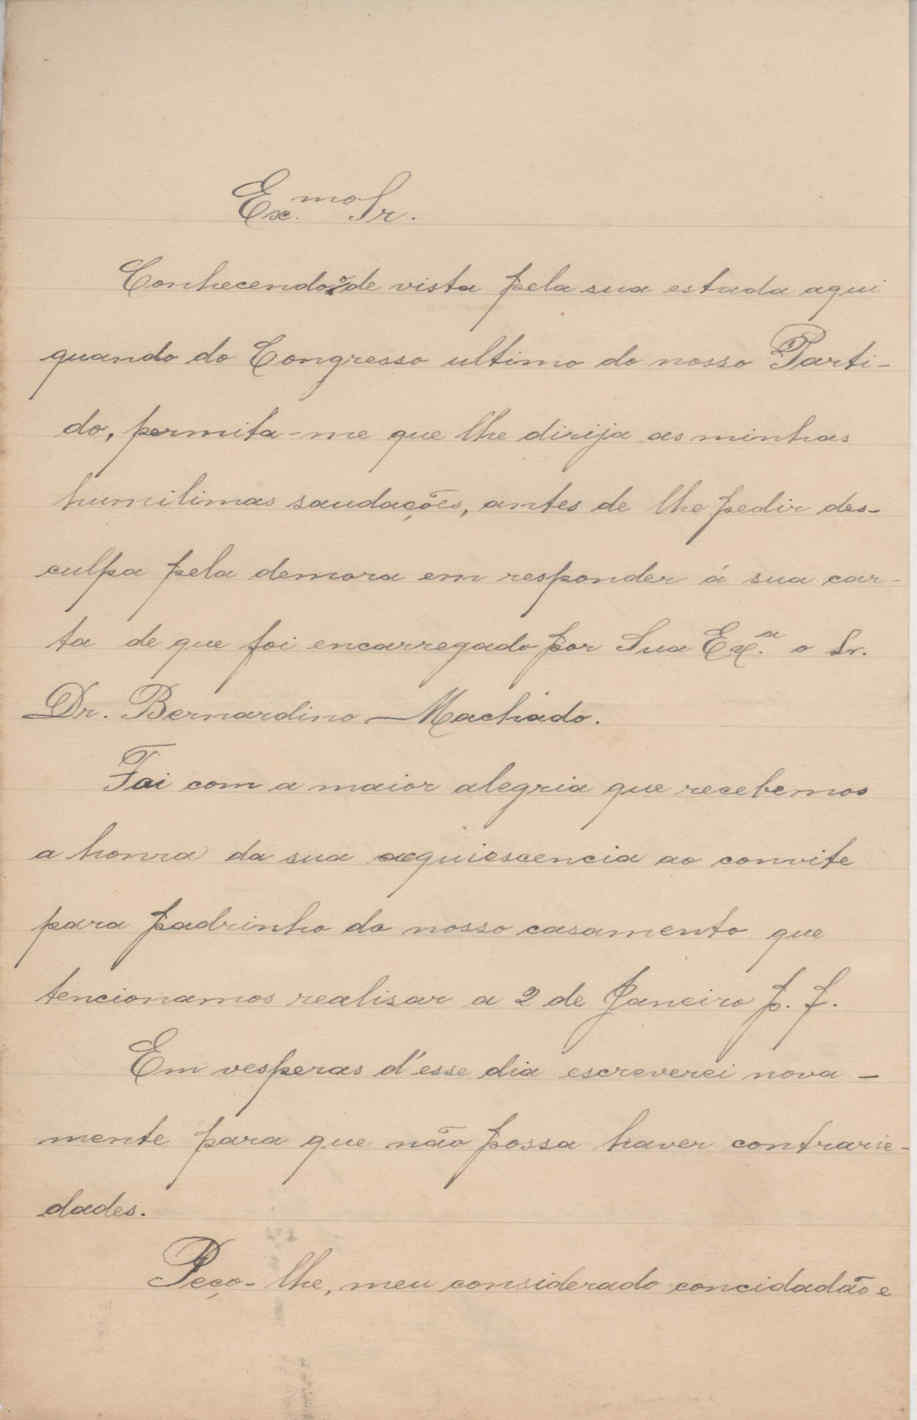 Ex.mo Sr.
Conhecendo-o de vista pela sua estada aqui
quando do Congresso ultimo do nosso Parti-
do, permita-me que lhe dirija as minhas
humilimas saudações, antes de lhe pedir des-
culpa pela demora em responder á sua car-
ta de que foi encarregado por Sua Ex.a o Sr.
Dr. Bernardino Machado.
Foi com a maior alegria que recebemos
a honra da sua aquiescencia ao convite
para padrinho do nosso casamento que
tencionamos realisar a 2 de Janeiro p. f.
Em vesperas d'esse dia escreverei nova-
mente para que não possa haver contrarie-
dades.
Peço-lhe, meu considerado concidadão e